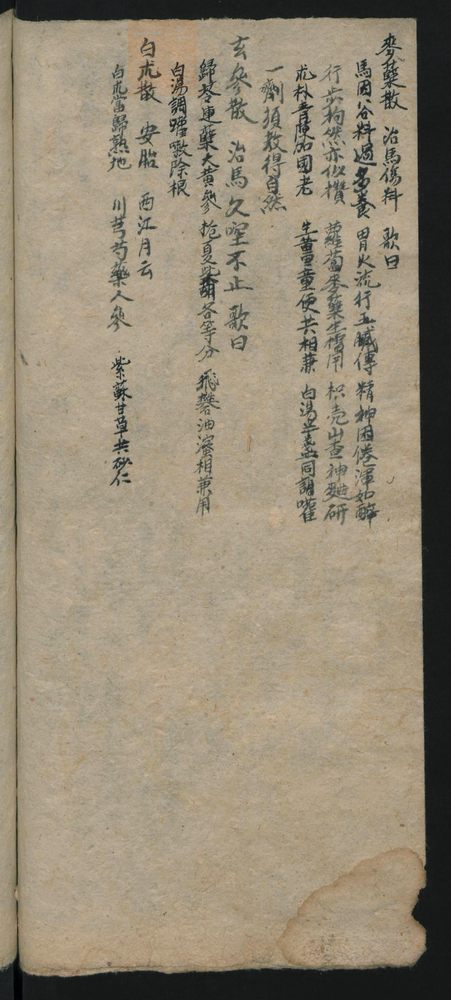 麥蘗散 治馬傷料 歌曰
馬因谷料過多養 胃火流行五臟傳 精神困倦渾如醉
行步拘然亦似攢 蘿蔔麥蘗生 枳壳山查神麯研
朴青陳加國老 生薑童便共相兼 白湯 同調嚾
一劑須教得自然
玄參散 治馬久 不止 歌曰
歸芩連蘗大黃參 夏 各等分 飛礬油蜜相兼用
白湯調 除根
白朮散 安胎 西江月云
白朮當歸熟地 川芎芍藥人參 紫蘇甘草共砂仁